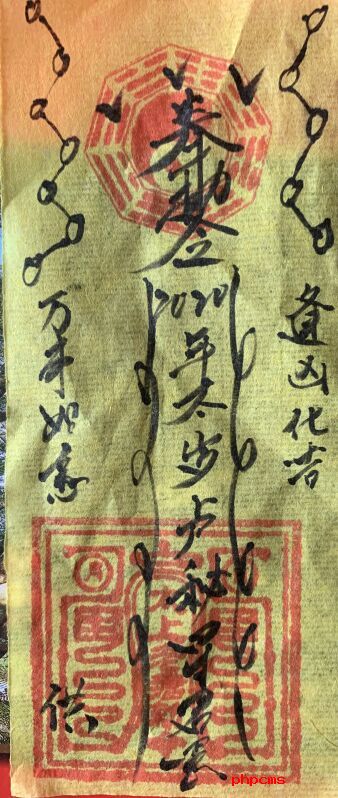 逢凶化吉
奉勅令2020年太岁卢秘星君
万事如意
供
phpcms